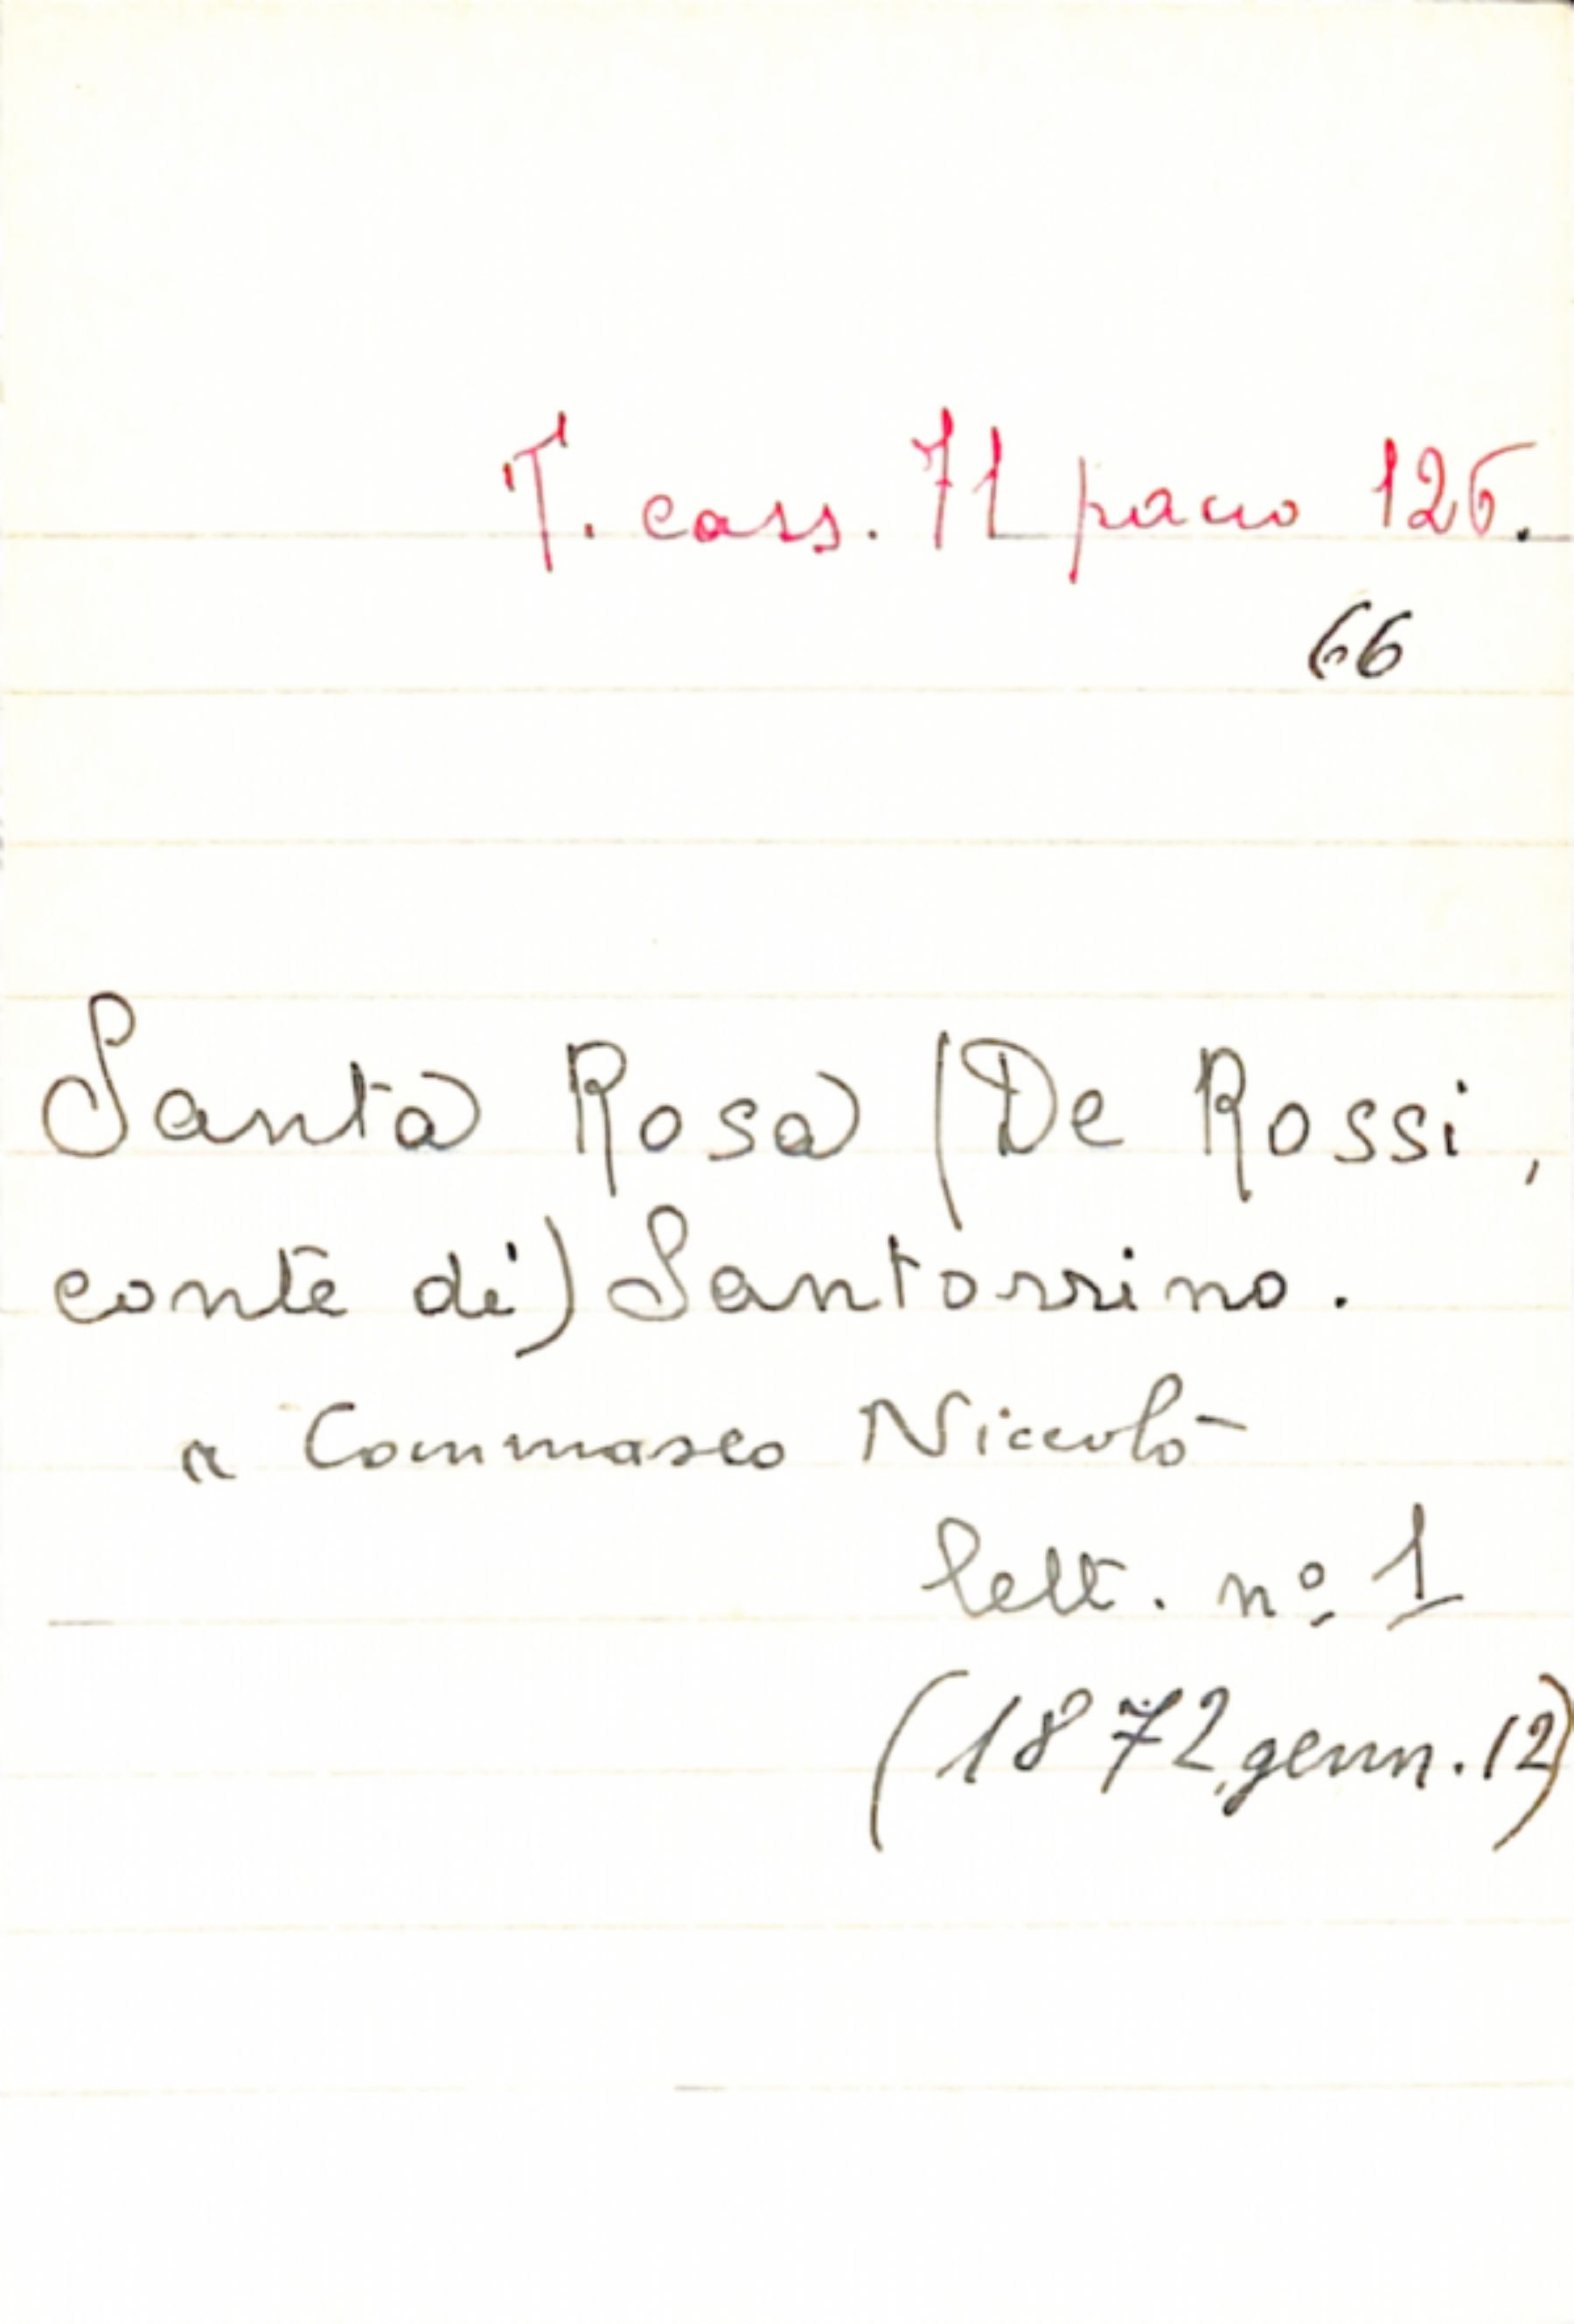 T. cass. 71 pacco 126.
66
Santa Rosa (De Rossi,
conte di) Santorrino.
a Tommaseo Niccolò
lett. nº 1
(1872, genn. 12)